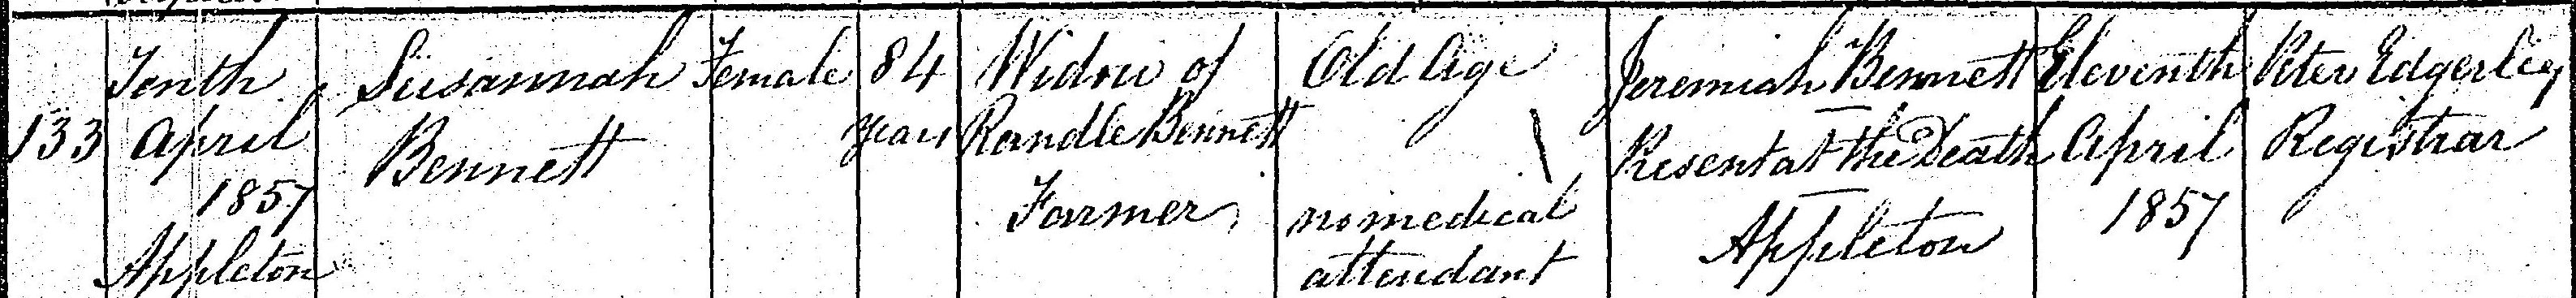 133
Tenth
April
1857
Appleton
Susannah
Bennett
Female
84
years
Widow of
Randle Bennett
Farmer
Old Age
no medical
attendant
Jeremiah Bennett
Present at the Death
Appleton
Eleventh
April
1857
Peter Edgerley
Registrar